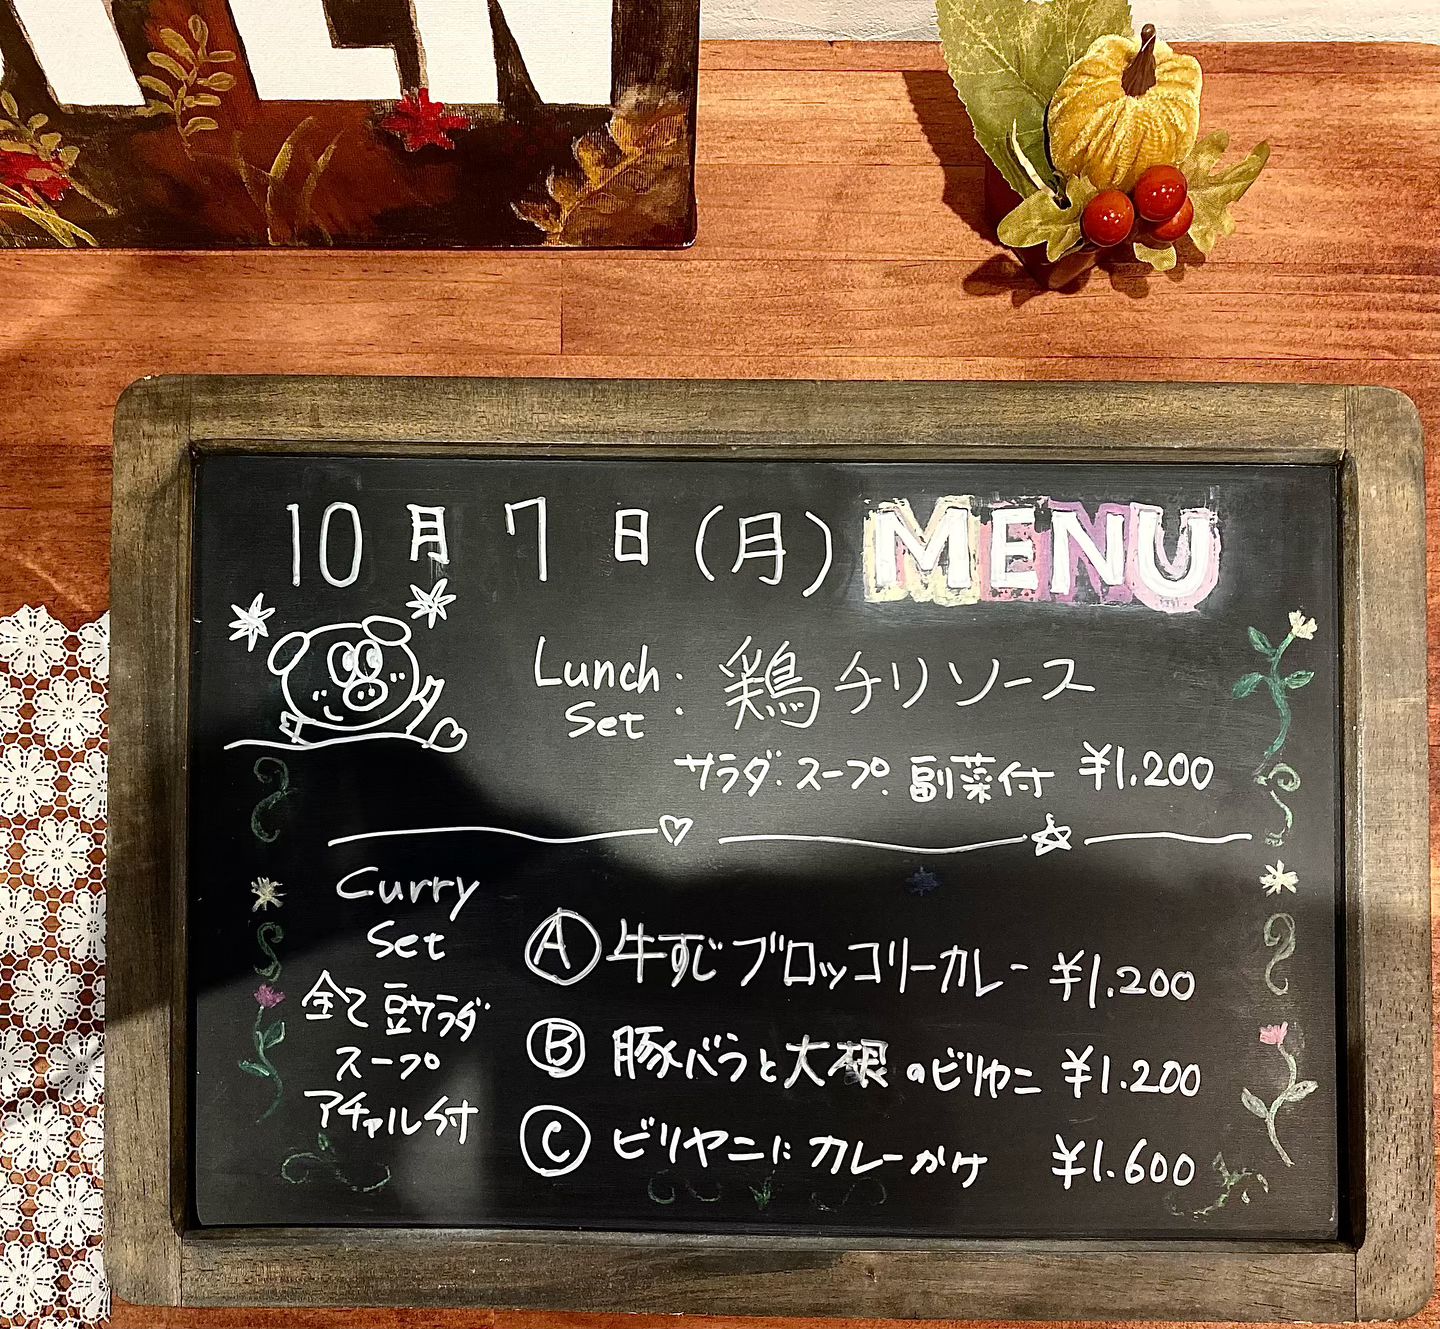 10月7日(月) MENU
Lunch Set : 鶏チリソース
サラダ・スープ・副菜付 ¥1.200
Curry Set
全て豆サラダ
スープ
アチャル付
Ⓐ牛すじブロッコリーカレー ¥1.200
Ⓑ豚バラと大根のビリヤニ ¥1.200
Ⓒビリヤニにカレーかけ ¥1.600